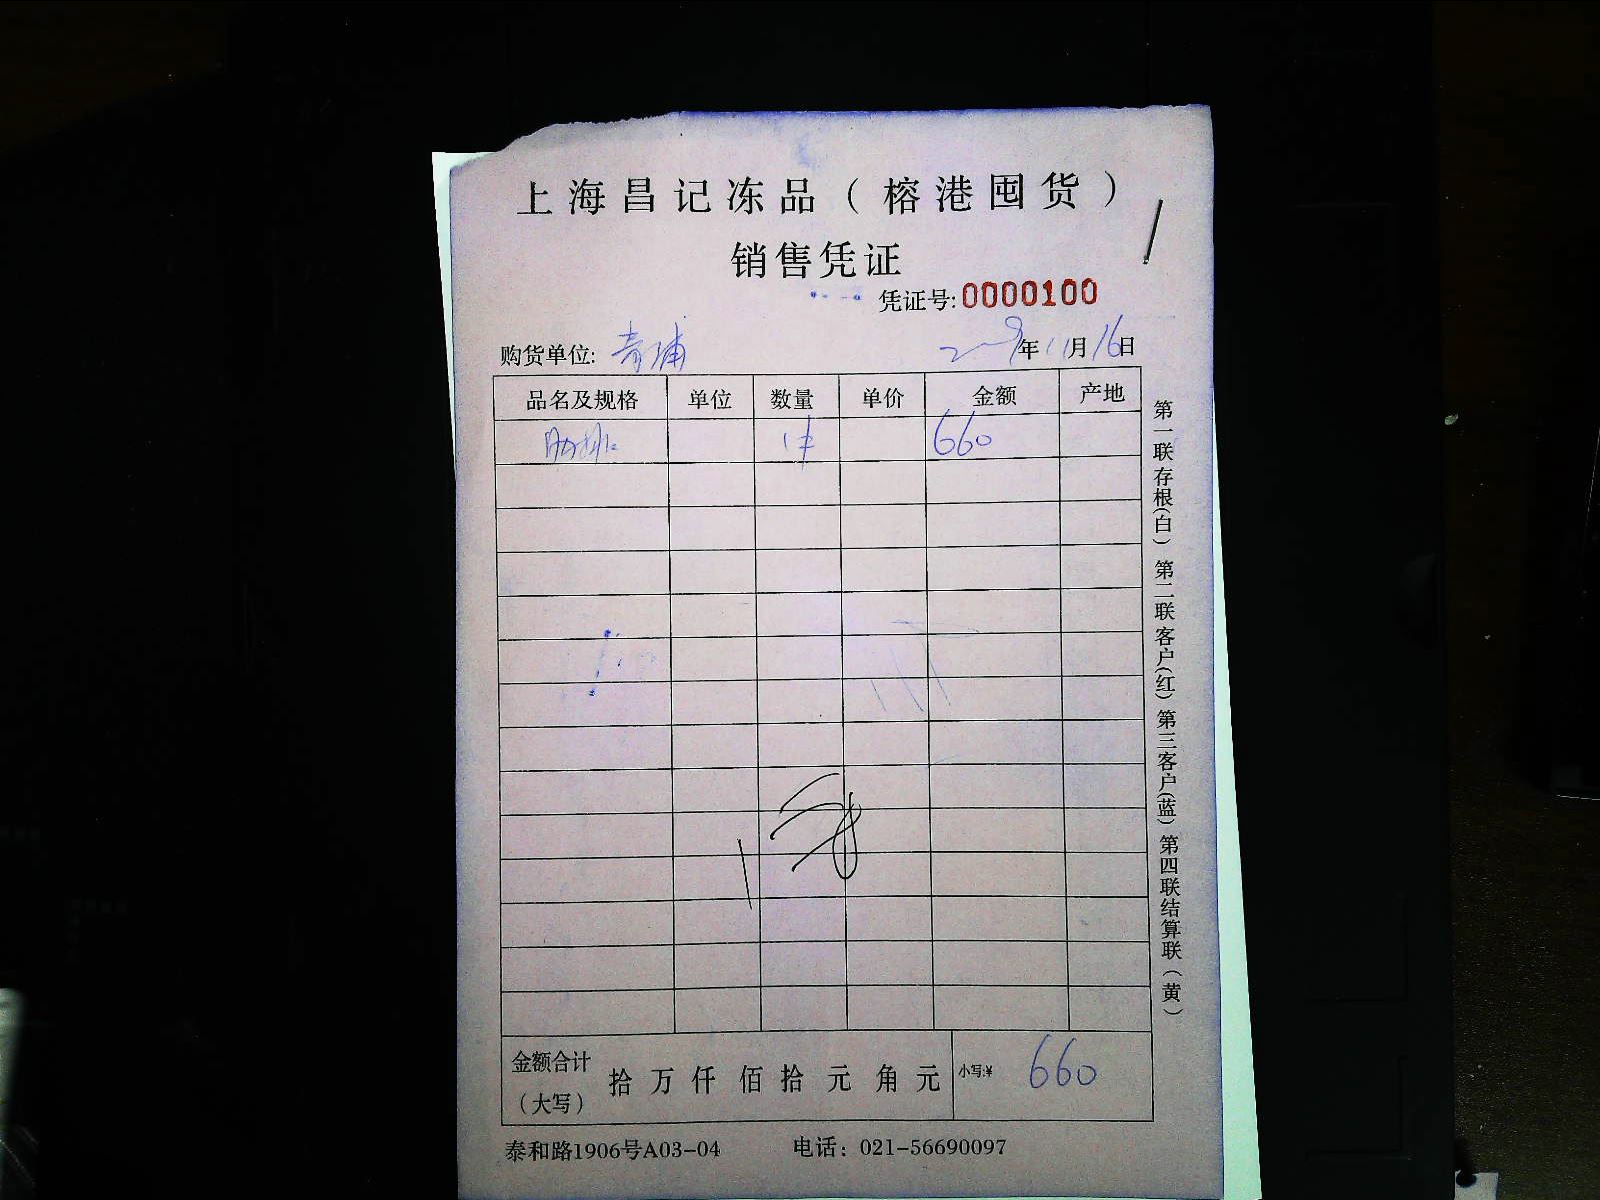 上海昌记冻品（榕港囤货）
销售凭证
凭证号:0000100
购货单位: 青浦 年11月16日
品名及规格 单位 数量 单价 金额 产地
肋排 1件 660
金额合计（大写） 拾 万 仟 佰 拾 元 角 元 小写:¥ 660
泰和路1906号A03-04 电话：021-56690097
第一联存根(白) 第二联客户(红) 第三客户(蓝) 第四联结算联(黄)